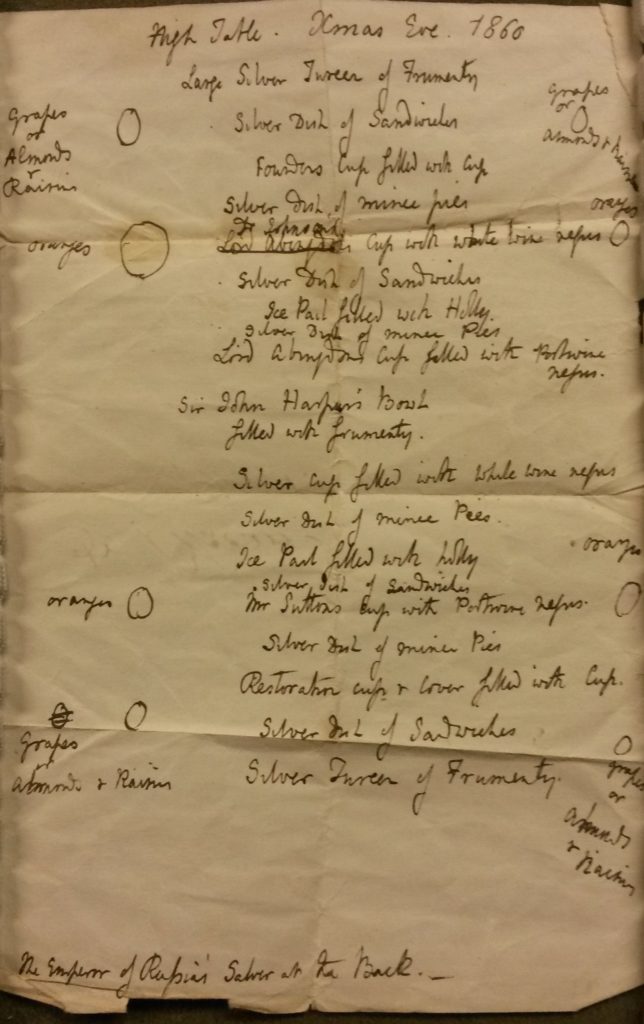 High Table. Xmas Eve. 1860
Large Silver Tureen of Frumenty
Grapes
or
Almonds
&
Raisins
Grapes
or
Almonds & Raisins
Silver Dish of Sandwiches
Founders Cup filled with Cup
Silver Dish of mince pies
oranges
oranges
Dr Johnsons
Lord Abingdons Cup with white wine negus
Silver Dish of Sandwiches
Ice Pail filled with Holly.
Silver Dish of mince Pies
Lord Abingdons Cup filled with Portwine
negus.
Sir John Harper's Bowl
filled with frumenty.
Silver cup filled with white wine negus
Silver Dish of mince Pies.
Ice Pail filled with holly
oranges
Silver Dish of Sandwiches
oranges
Mr Suttons Cup with Portwine negus.
Silver Dish of mince Pies
Restoration cup & cover filled with Cup.
Silver Dish of Sandwiches
Grapes
or
Almonds & Raisins
Silver Tureen of Frumenty.
grapes
or
Almonds
&
Raisins
The Emperor of Russia's Salver at the Back.—